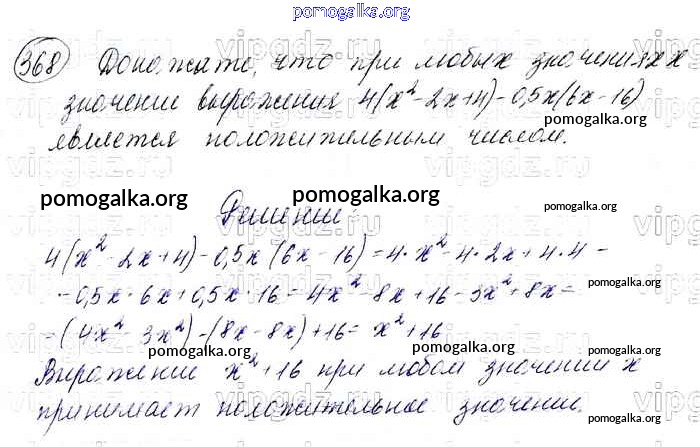 pomogalka.org
368 Докажите, что при любых значениях x
значение выражения 4(x² - 2x + 4) - 0,5x(6x - 16)
pomogalka.org
является положительным числом.
pomogalka.org pomogalka.org pomogalka.org
Решение:
4(x² - 2x + 4) - 0,5x (6x - 16) = 4·x² - 4·2x + 4·4 -
pomogalka.org
- 0,5x·6x + 0,5x·16 = 4x² - 8x + 16 - 3x² + 8x =
= (4x² - 3x²) - (8x - 8x) + 16 = x² + 16
pomogalka.org pomogalka.org pomogalka.org
Выражение x² + 16 при любом значении x
принимает положительное значение.
pomogalka.org